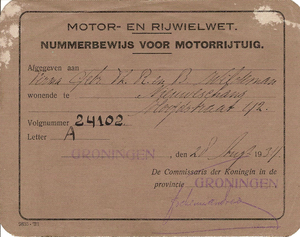 MOTOR- EN RIJWIELWET.
NUMMERBEWIJS VOOR MOTORRIJTUIG.
Afgegeven aan Firma Gebr
wonende te Nieuweschans
Hoofdstraat 1/2.
Volgnummer 24102
Letter A
GRONINGEN, den 28 Aug 193
De Commissaris der Koningin in de
provincie GRONINGEN